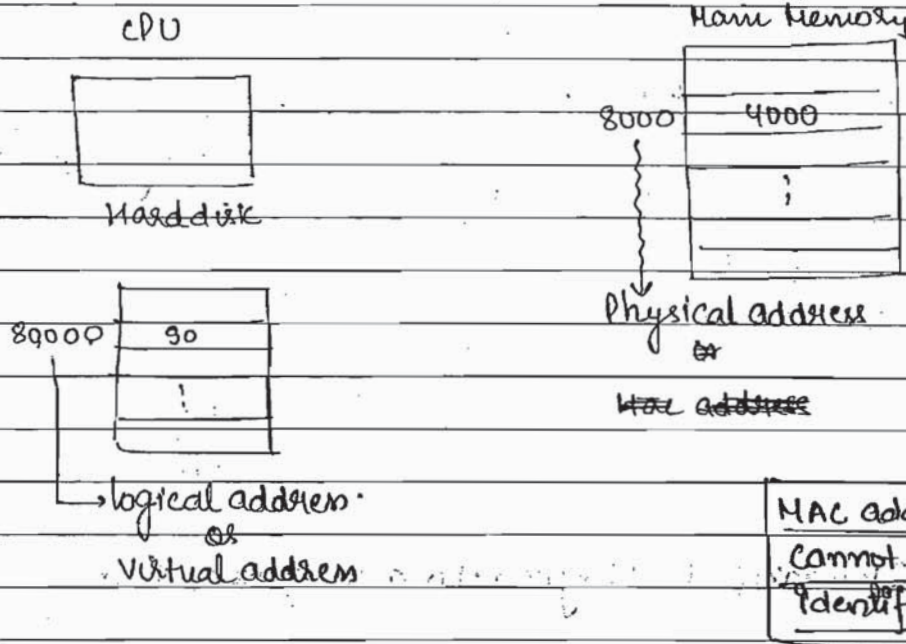 CPU
Main Memory
8000 4000
Harddisk
Physical address
or
MAC address
89000 90
logical address.
or
Virtual address
MAC add
cannot
identif